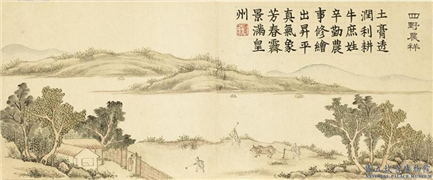 四野農祥
土膏透
潤利耕
牛庶姓
辛勤農
事修繪
出昇平
真氣象
芳春霽
景滿皇
州
國立故宮博物院
NATIONAL PALACE MUSEUM